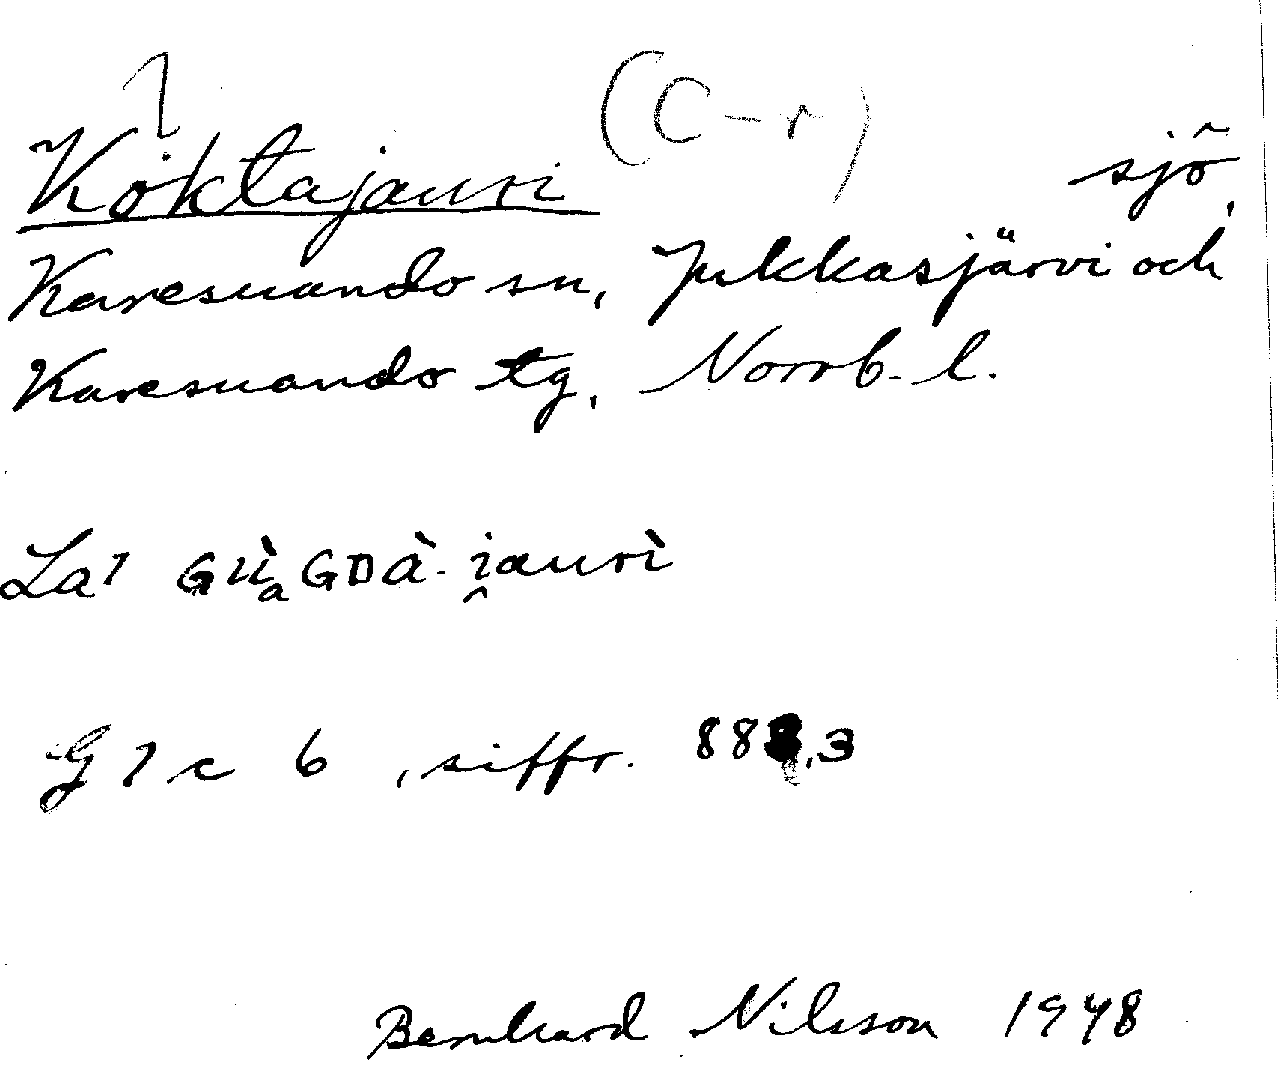 1 (C-r)
Koktajauri sjö,
Karesuando sn, Jukkasjärvi och
Karesuando tg, Norrb. l.
La1 GùₐGDÀ-i̯aurì̯
G 1 c 6, siffr. 888,3
Bernhard Nilsson 1948